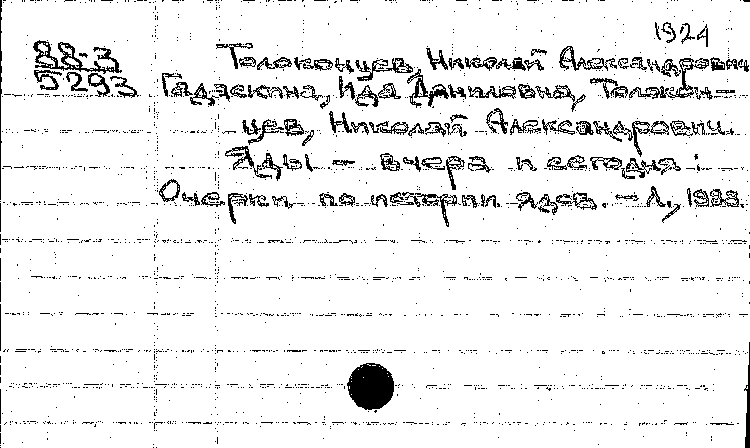 1924
88-3
5293
Толоконцев, Николай Александрович
Гадаскина, Ида Даниловна, Толокон-
цев, Николай Александрович.
Яды — вчера и сегодня:
Очерки по истории ядов. — Л., 1988.